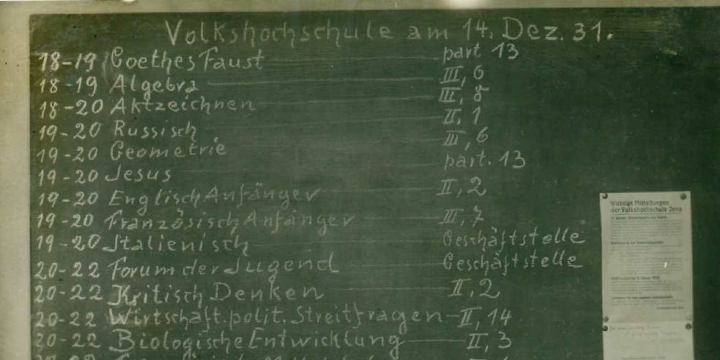 Volkshochschule am 14. Dez. 31.
18-19 Goethes Faust part 13
18-19 Algebra III, 6
18-20 Aktzeichnen III, 8
19-20 Russisch II, 1
19-20 Geometrie III, 6
19-20 Jesus part. 13
19-20 Englisch Anfänger II, 2
19-20 Französisch Anfänger III, 7
19-20 Italienisch Geschäftstelle
20-22 Forum der Jugend Geschäftstelle
20-22 Kritisch Denken II, 2
20-22 Wirtschaft.polit. Streitfragen II, 14
20-22 Biologische Entwicklung II, 3
Wichtige Mitteilungen
der Volkshochschule Jena